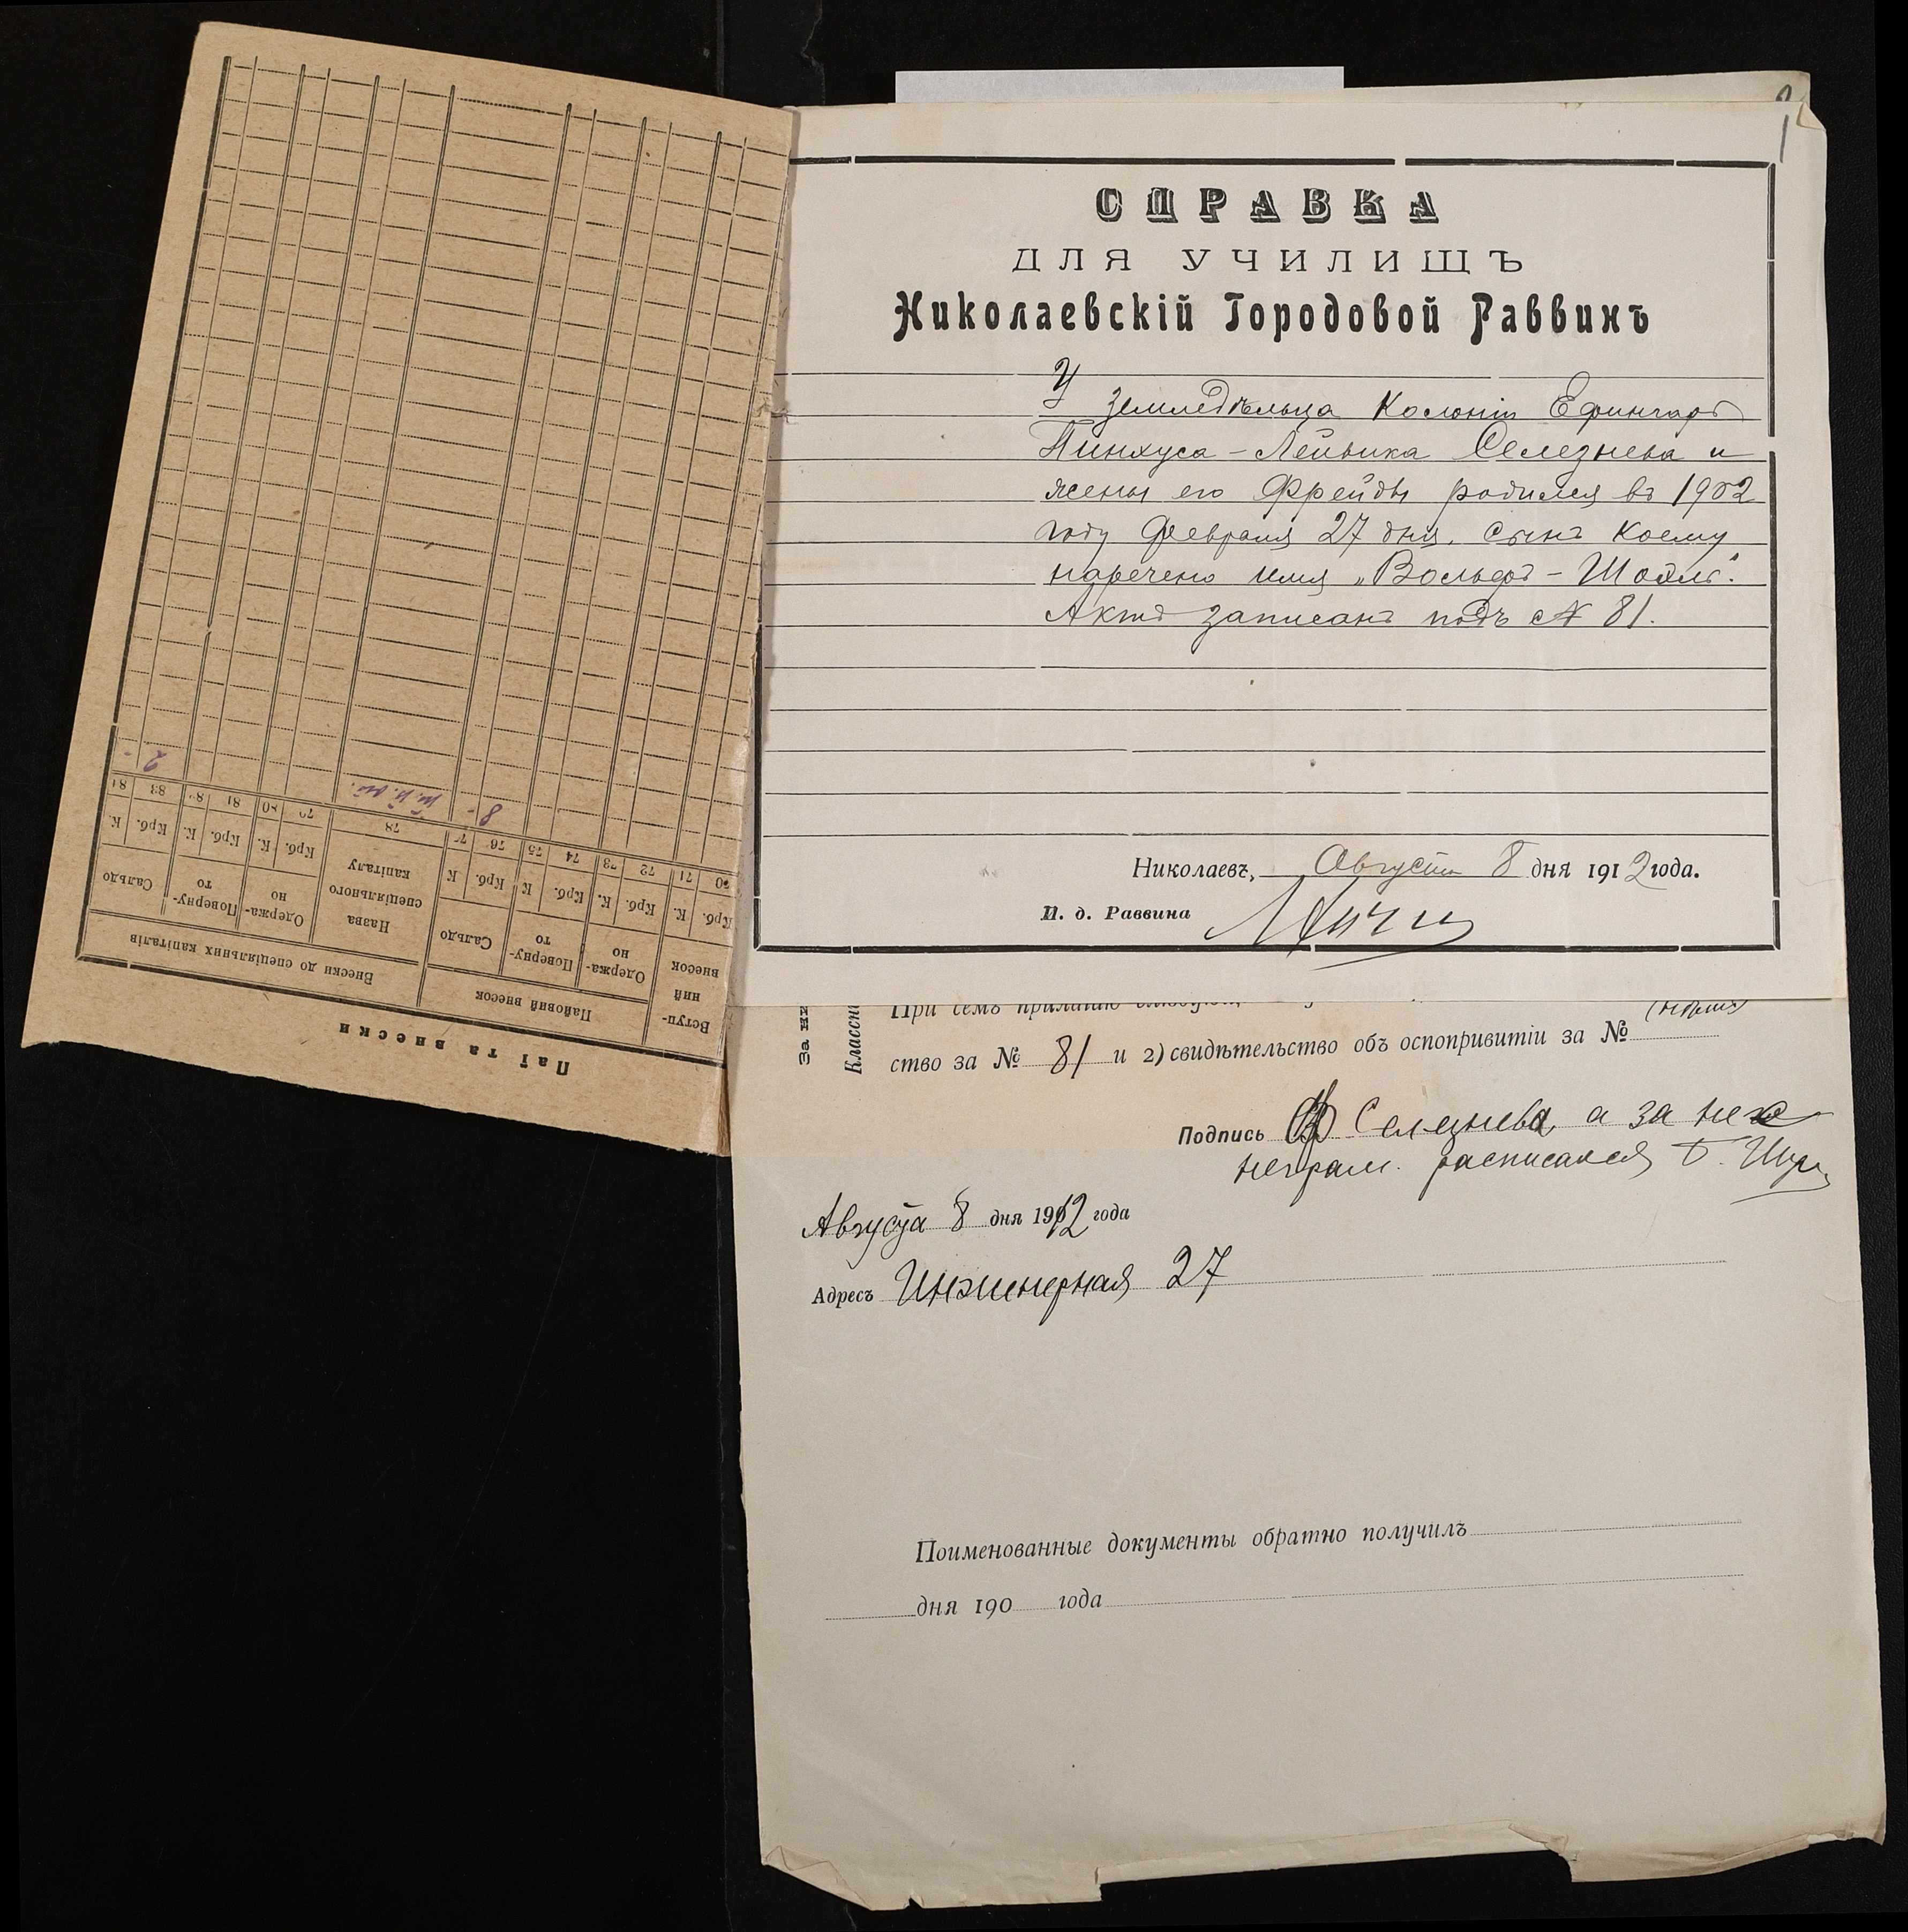 СПРАВКА
ДЛЯ УЧИЛИЩЪ
Николаевскій Городовой Раввинъ
У
земледѣльца Колоніи Ефингаръ
Пинхуса-Лейвика Селезнева и
жены его Фрейды родился въ 1902
году Февраля 27 дня. сынъ коему
наречено имя „Вольфъ-Шоэль".
Актъ записанъ подъ № 81.
Николаевъ, Августа 8 дня 1912 года.
И. д. Раввина
За
При семъ прилагаю
ство за № 81 и 2) свидѣтельство объ оспопривитіи за №
Подпись Ф Селезнева, а за нее
неграм. расписался
Августа 8 дня 1912 года
Адресъ Инженерная 27
Поименованные документы обратно получилъ
дня 190 года
Паї та внески
Вступ-
ний
внесок
Пайовий внесок
Внески до спеціяльних капіталів
Одержа-
но
Поверну-
то
Сальдо
Назва
спеціяльного
капіталу
Одержа-
но
Поверну-
то
Сальдо
Крб. К. Крб. К. Крб. К Крб. К Крб. К. Крб. К. Крб. К.
70 71 72 73 74 75 76 77 78 79 80 81 82 83 84
8 - 2 -